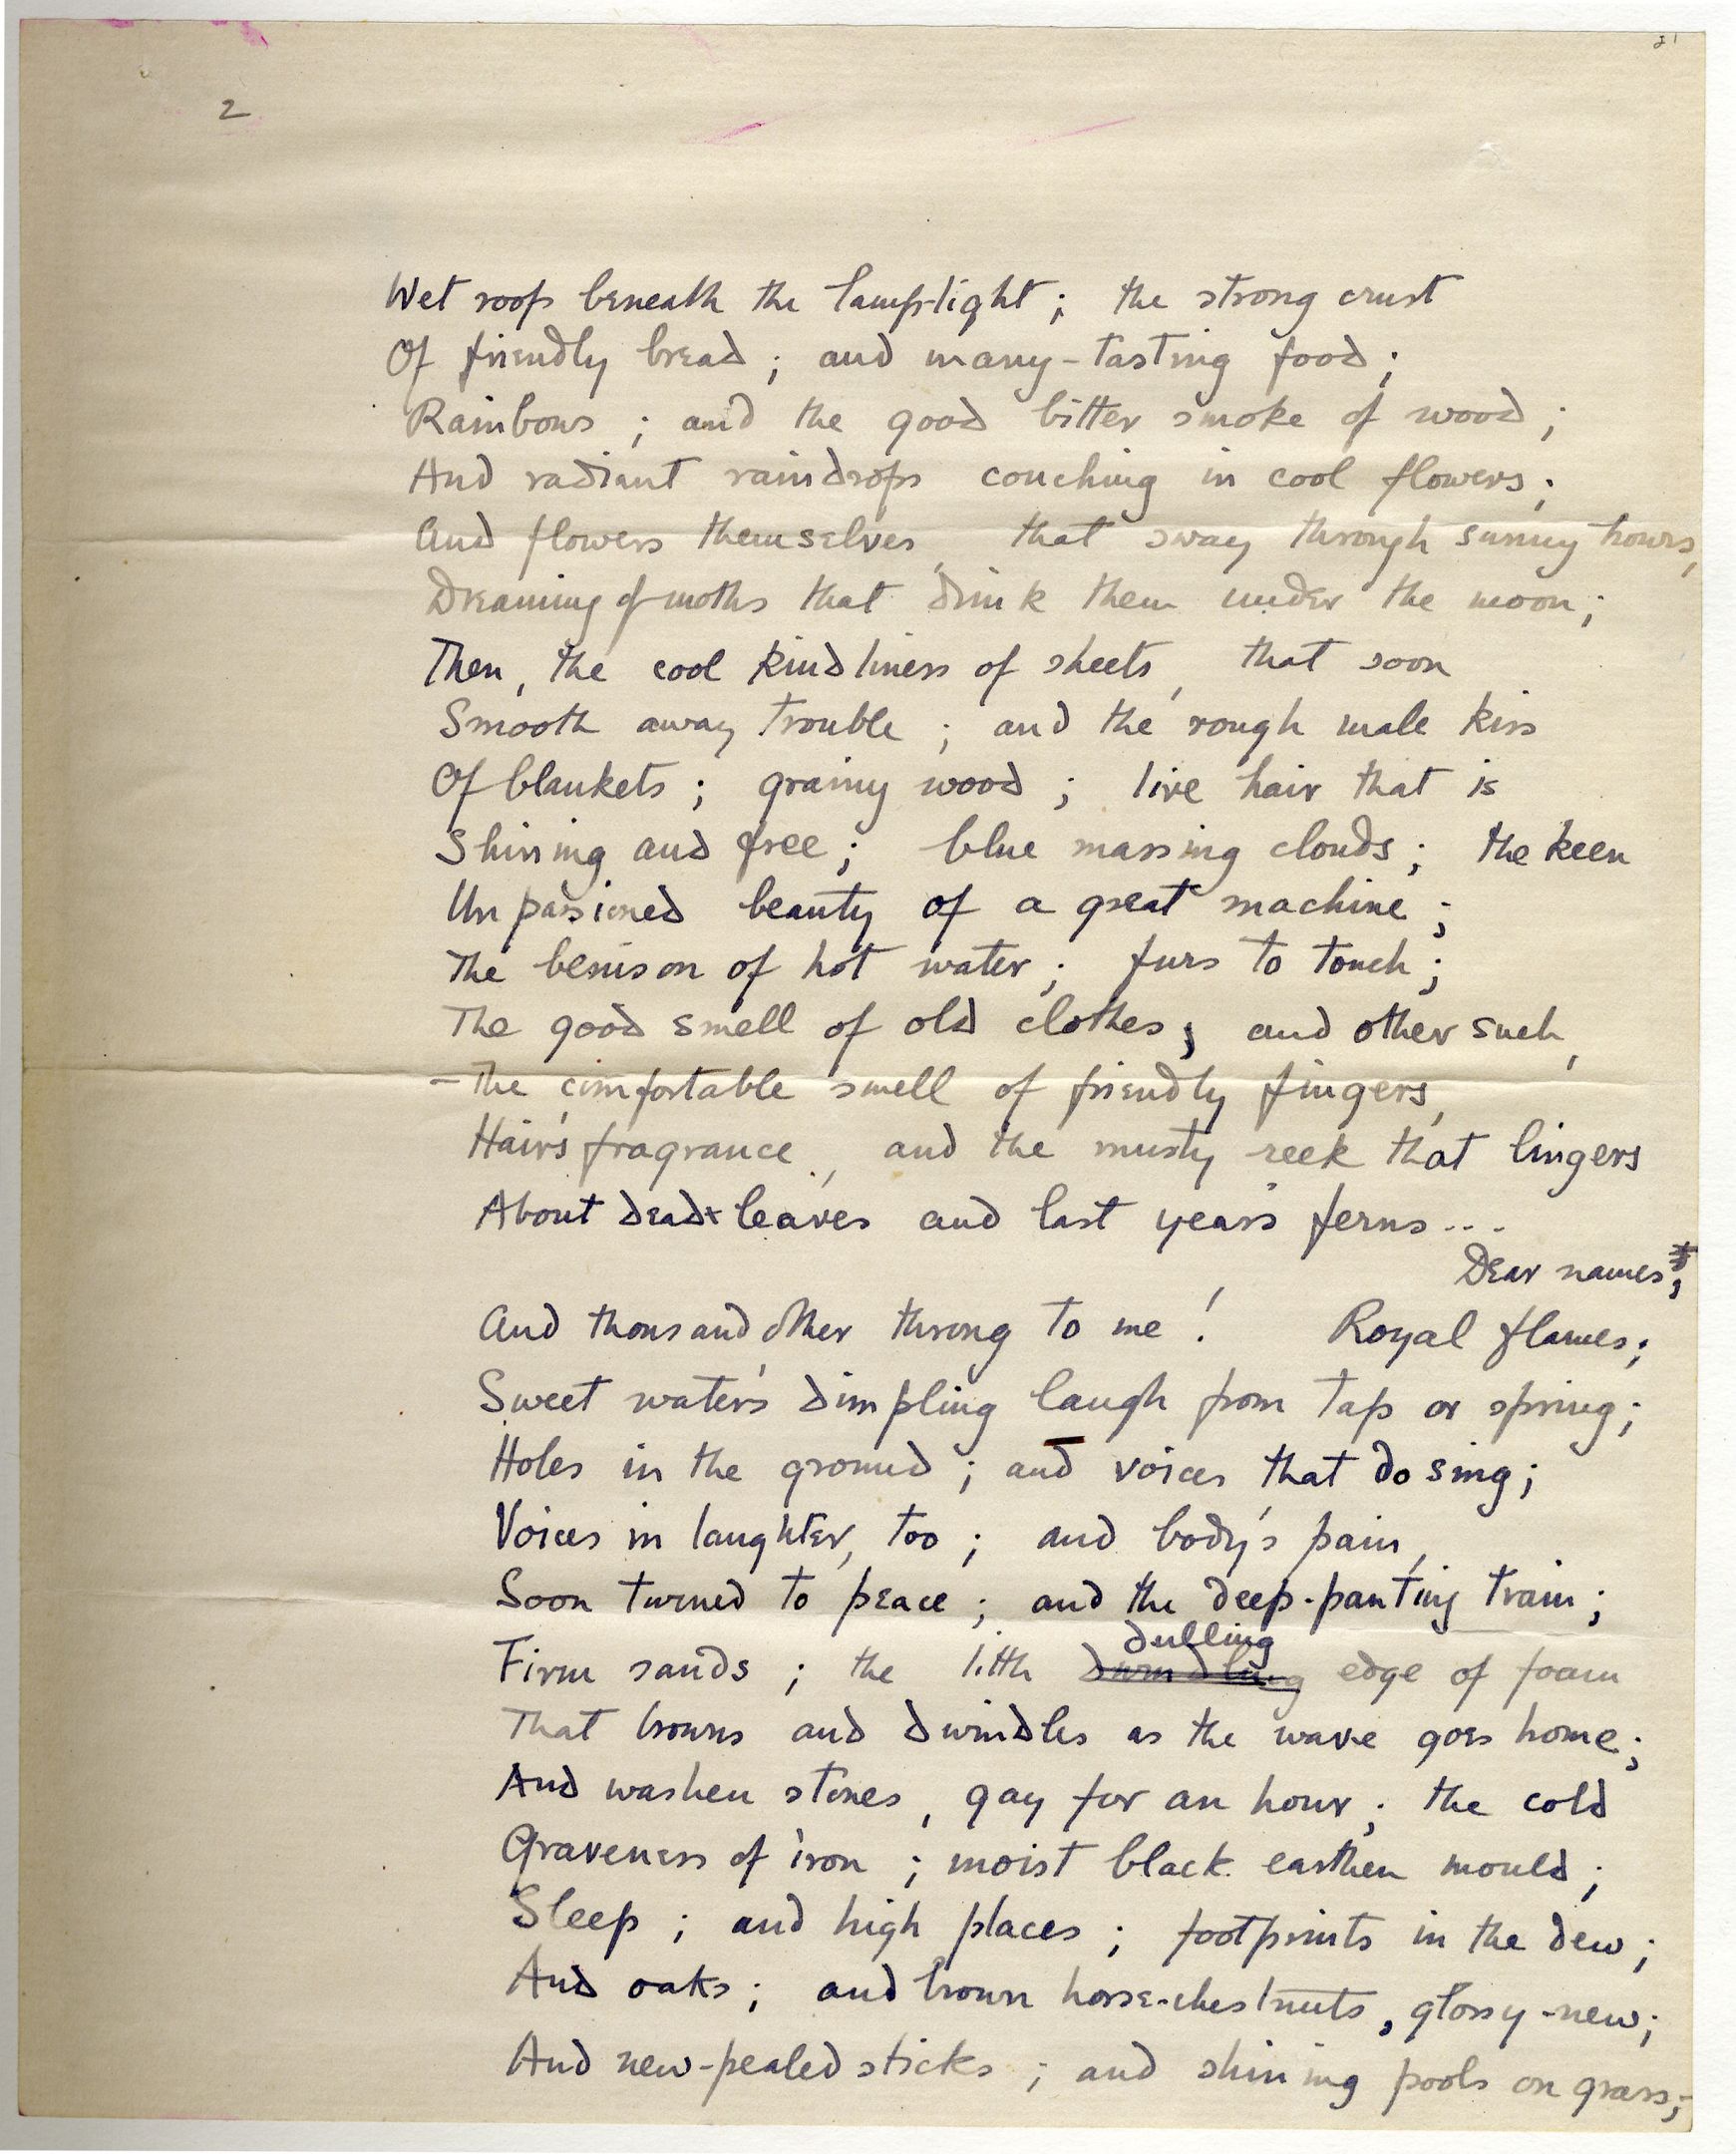 2
Wet roofs beneath the lamp-light; the strong crust
Of friendly bread; and many-tasting food;
Rainbows; and the good bitter smoke of wood;
And radiant raindrops couching in cool flowers;
And flowers themselves, that sway through sunny hours,
Dreaming of moths that drink them under the moon;
Then, the cool kindliness of sheets, that soon
Smooth away trouble; and the rough male kiss
Of blankets; grainy wood; live hair that is
Shining and free; blue massing clouds; the keen
Unpassioned beauty of a great machine;
The benison of hot water; furs to touch;
The good smell of old clothes; and other such,
—The comfortable smell of friendly fingers,
Hair's fragrance, and the musty reek that lingers
About dead leaves and last year's ferns...
Dear names,
And thousand other throng to me! Royal flames;
Sweet water's dimpling laugh from tap or spring;
Holes in the ground; and voices that do sing;
Voices in laughter, too; and body's pain,
Soon turned to peace; and the deep-panting train;
dulling
Firm sands; the little dwindling edge of foam
That browns and dwindles as the wave goes home;
And washen stones, gay for an hour; the cold
Graveness of iron; moist black earthen mould;
Sleep; and high places; footprints in the dew;
And oaks; and brown horse-chestnuts, glossy-new;
And new-pealed sticks; and shining pools on grass;—